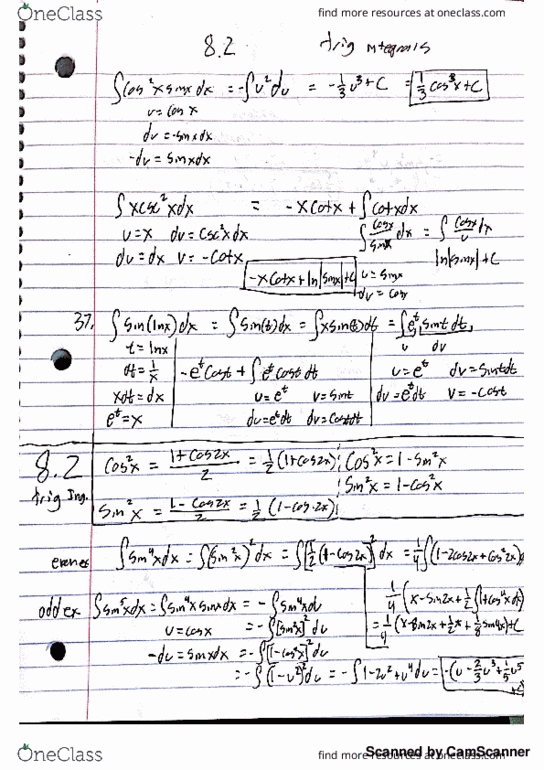 OneClass
find more resources at oneclass.com
8.2 trig integrals
∫cos²x sinx dx = -∫u² du = -1/3 u³ + C = 1/3 cos³x + C
u = cos x
du = -sinx dx
-du = sinx dx
∫xcsc²x dx = -xcotx + ∫cotx dx
u = x dv = csc²x dx
du = dx v = -cotx
∫cosx/sinx dx = ∫cosx/u dx
ln|sinx| + C
-xcotx + ln|sinx| + C
u = sinx
du = cosx
37. ∫sin(lnx) dx = ∫sin(t) dx = ∫xsin(t) dt = ∫e^t sint dt
u dv
t = lnx
dt = 1/x
xdt = dx
e^t = x
-e^t cost + ∫e^t cost dt
u = e^t v = sint
du = e^t dt dv = cost dt
u = e^t dv = sint dt
du = e^t dt v = -cost
8.2
trig Ing.
cos²x = 1+cos2x/2 = 1/2 (1+cos2x)
cos²x = 1-sin²x
sin²x = 1-cos²x
sin²x = 1-cos2x/2 = 1/2 (1-cos·2x)
∫sin⁴x dx = ∫(sin²x)² dx = ∫[1/2 (1-cos2x)]² dx = 1/4 ∫(1-2cos2x+cos²2x)
1/4 (x-sin2x+1/2 ∫1+cos4x dx)
= 1/4 (x-sin2x+1/2 x+1/8 sin4x)+C
odd ex ∫sin⁵x dx = ∫sin⁴x sinx dx = -∫sin⁴x du
u = cosx = -∫[sin²x]² du
-du = sinx dx = -∫[1-cos²x]² du
= -∫(1-u²)² du = -∫1-2u²+u⁴ du = -(u-2/3 u³+1/5 u⁵ +C
Scanned by CamScanner
OneClass
find more resources at oneclass.com